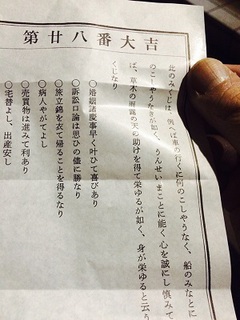 第廿八番大吉
此のみくじは、例へば車の行くに何のこしやうなく、船のみなとに
のこしやうなきが如く、うんせいまことに能く心を誠にし慎みて
ば、草木の雨露の天の助けを得て栄ゆるが如く、身が栄ゆると云う
くじなり
〇婚姻諸慶事早く叶ひて喜びあり
〇訴訟口論は思ひの儘に勝なり
〇旅立錦を衣て帰ることを得るなり
〇病人やがてよし
〇売買物は進みて利あり
〇宅替よし、出産安し